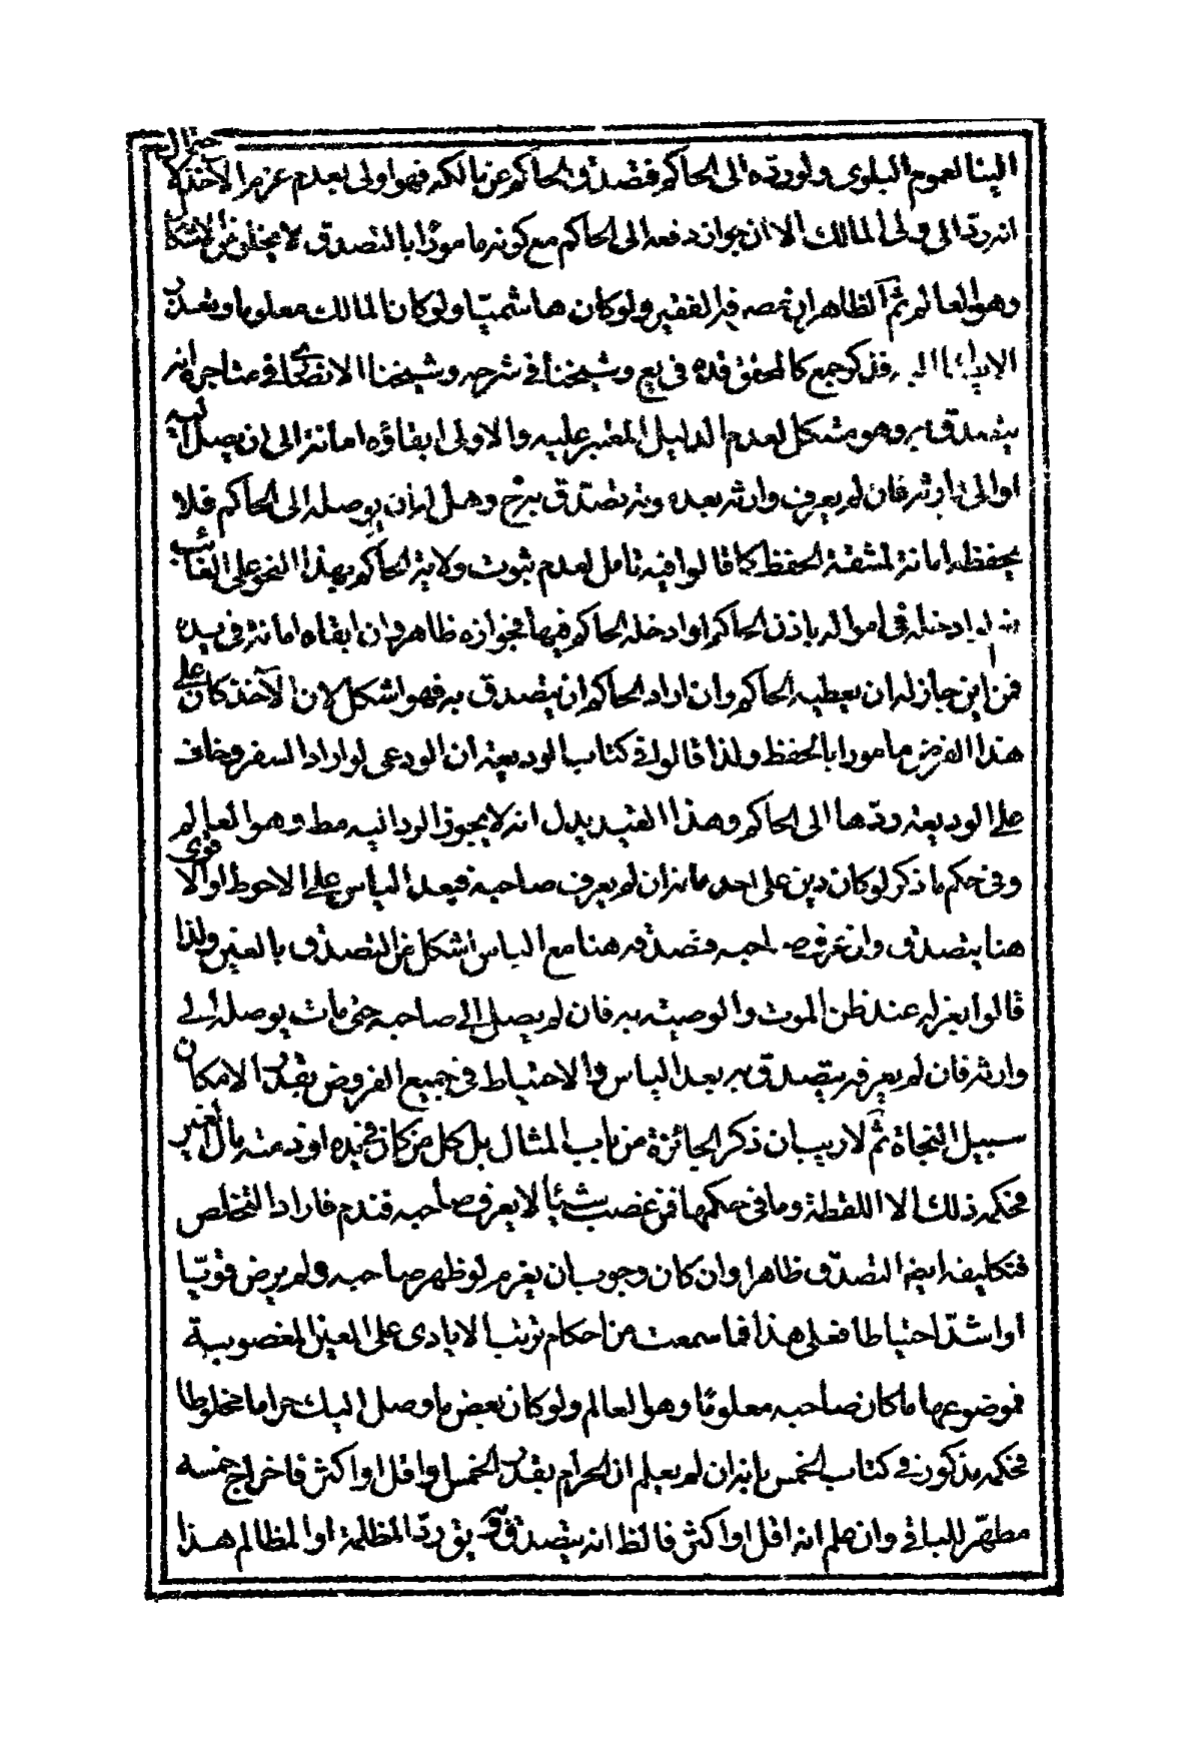 الينا لعموم البلوى ولو ردّه الى الحاكم فتصدق الحاكم عن مالكه فهو اولى بعدم غرم الآخذ لا حتمال
انه ردّ الى ولى المالك الا ان جواز دفعه الى الحاكم مع كونه مامورًا بالتصدق لا يخلو عن الاشكال
وهو العالم ثم الظاهر ان مصرفه الفقير ولو كان هاشميّا ولو كان المالك معلوما وتعذر
الايصال اليه فذكر جمع كالمحقق قده فى يع وشيخنا فى شرحه وشيخنا الانصارى فى متاجره انه
يتصدق به وهو مشكل لعدم الدليل المعتبر عليه والاولى ابقاؤه امانة الى ان يصل اليه
او الى وارثه فان لم يعرف وارثه بعده وثه تصدق به ح وهل له ان يوصله الى الحاكم قلا
يحفظه امانة لمشقة الحفظ كما قالوا فيه تامل لعدم ثبوت ولاية الحاكم بهذا النحو على الغائب
له ادخله فى امواله باذن الحاكم او ادخله الحاكم فيها فجوازه ظاهر وان ابقاه امانة فى يده
فمن اين جاز له ان يعطيه الحاكم وان اراد الحاكم ان يتصدق به فهو اشكل لان الآخذ كان على
هذا الفرض مامورا بالحفظ ولذا قالوا فى كتاب الوديعة ان الودعى لو اراد السفر وخاف
على الوديعة ردّها الى الحاكم وهذا القيد يدل انه لا يجوز الرد اليه مط وهو العالم
وفى حكم ما ذكر لو كان دين على احد مات ان لم يعرف صاحبه فبعد الياس على الاحوط او الاقوى
هنا يتصدق وان عرف صاحبه فتصدقه هنا مع الياس اشكل من التصدق بالعين ولذا
قالوا يعزله عند ظن الموت والوصية به فان لم يصل الى صاحبه حتى مات يوصله الى
وارثه فان لم يعرفه يتصدق به بعد الياس والاحتياط فى جميع الفروض بقدر الامكان
سبيل النجاة ثم لا ريب ان ذكر الجائزة من باب المثال بل كل من كان فى يده او ذمته مال الغير
فحكمه ذلك الا اللقطة وما فى حكمها فمن غصب شيئا لا يعرف صاحبه فندم فاراد التخلص
فتكليفه ايضا التصدق ظاهرا وان كان وجوب ان يغرم لو ظهر صاحبه ولم يرض قويّا
او اشدّ احتياطا فعلى هذا فما سمعت من احكام ترتب الايادى على العين المغصوبة
فموضوعها ما كان صاحبه معلومًا وهو العالم ولو كان بعض ما وصل اليك حراما مخلوطا
فحكمه مذكور فى كتاب الخمس بانه ان لم يعلم ان الحرام بقدر الخمس او اقل او اكثر فاخراج خمسه
مطهّر للباقى وان علم انه اقل او اكثر فالظ انه يتصدق و بق ردّ المظلمة او المظالم هذا